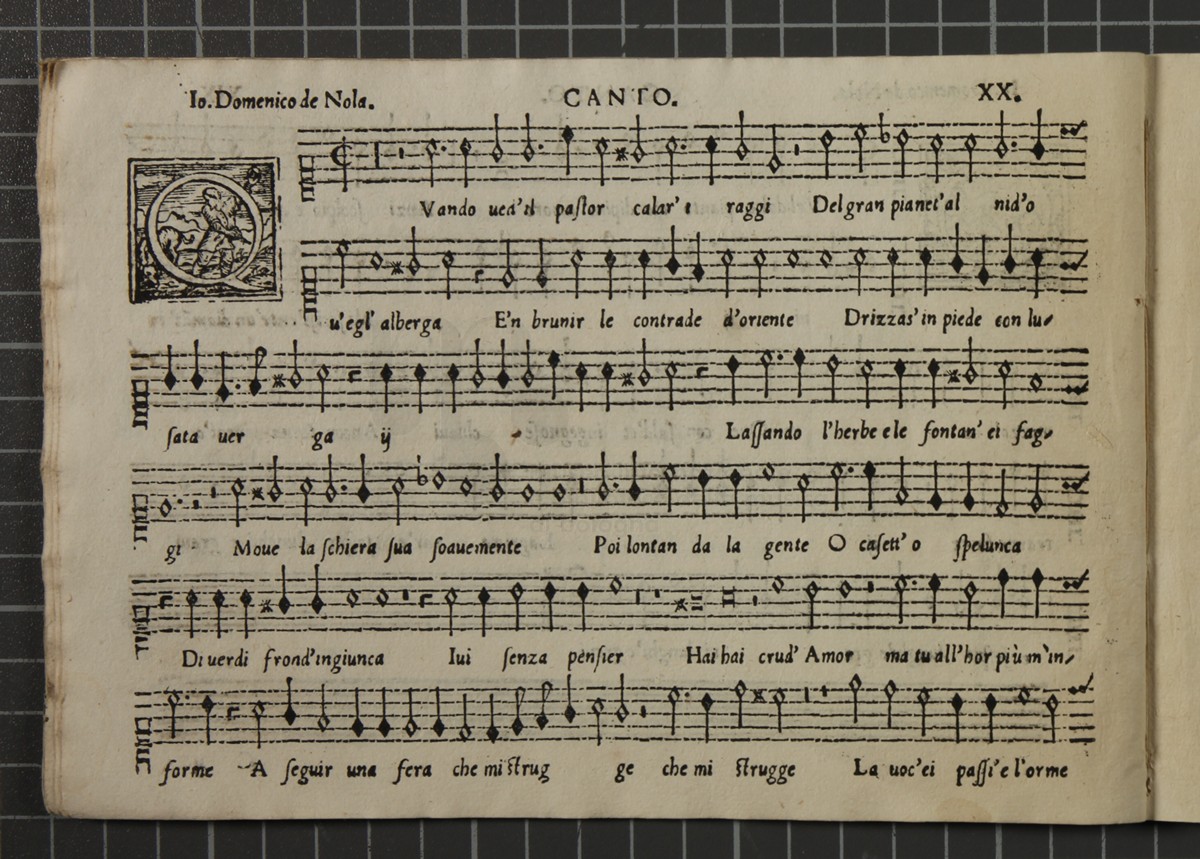 Io. Domenico de Nola. CANTO. XX.
QVando ued'il pastor calar'i raggi Del gran pianet'al nid'o
u'egl'alberga E'n brunir le contrade d'oriente Drizzas'in piede con lu/
sata uer ga ij Lassando l'herbe e le fontan'ei fag/
gi Moue la schiera sua soauemente Poi lontan da la gente O casett'o spelunca
Di uerdi frond'ingiunca Iui senza pensier Hai hai crud'Amor ma tu all'hor più m'in/
forme A seguir una fera che mi strug ge che mi strugge La uoc'ei passi'e l'orme